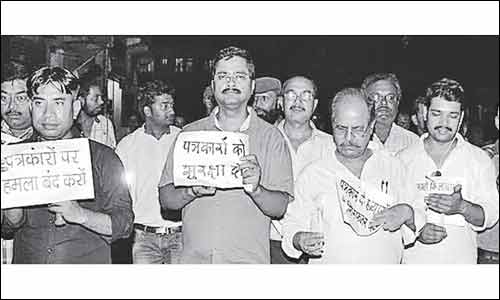 पत्रकारों पर
हमला बंद करो
पत्रकारों को
सुरक्षा दो
पत्रकारों